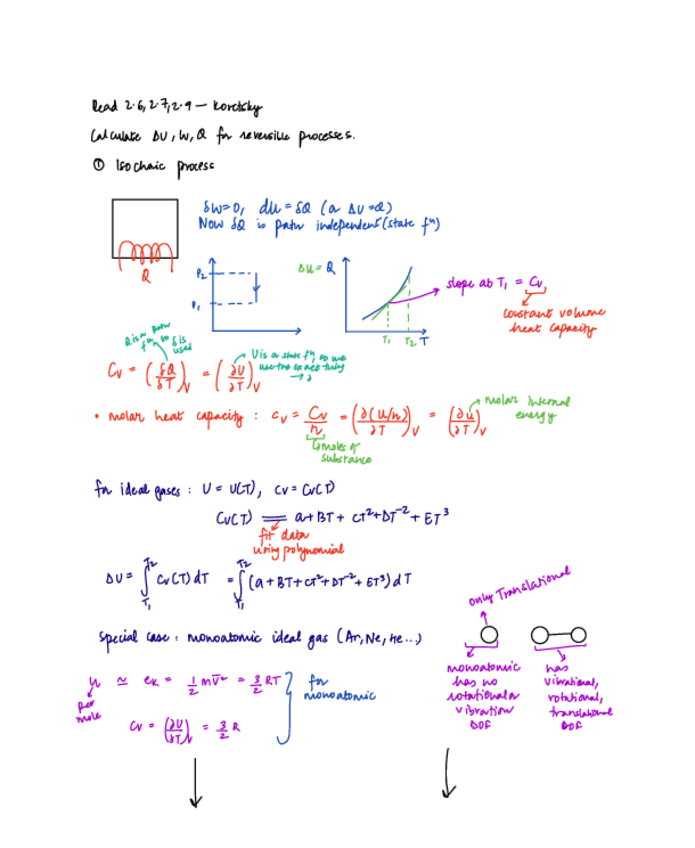 Read 2.6, 2.7, 2.9 — Koretsky
Calculate ΔU, W, Q for reversible processes.
① Isochoic process
δW=0, dU = δQ (a ΔU=Q)
Now δQ is path independent (state fⁿ)
Q
P₂
P₁
ΔU = Q
T₁ T₂ T
slope at T₁ = Cv
constant volume
heat capacity
Q is a path
fⁿ, so δ is
used
U is a state fⁿ, so we
use the exact
→ ∂
Cv = (δQ/δT)v = (∂U/∂T)v
• molar heat capacity : cv = Cv/n = (∂(U/n)/∂T)v = (∂u/∂T)v
molar internal
energy
moles of
substance
for ideal gases : U = U(T), Cv = Cv(T)
Cv(T) = a + BT + CT² + DT⁻² + ET³
fit data
using polynomial
ΔU = ∫T₁T₂ Cv(T) dT = ∫T₁T₂ (a + BT + CT² + DT⁻² + ET³) dT
only Translational
special case : monoatomic ideal gas (Ar, Ne, He...)
u ≃ eK = 1/2 mV̄² = 3/2 RT
per
mole
for
monoatomic
Cv = (∂U/∂T)v = 3/2 R
monoatomic
has no
rotational or
vibration
DOF
has
vibrational,
rotational,
translational
DOF